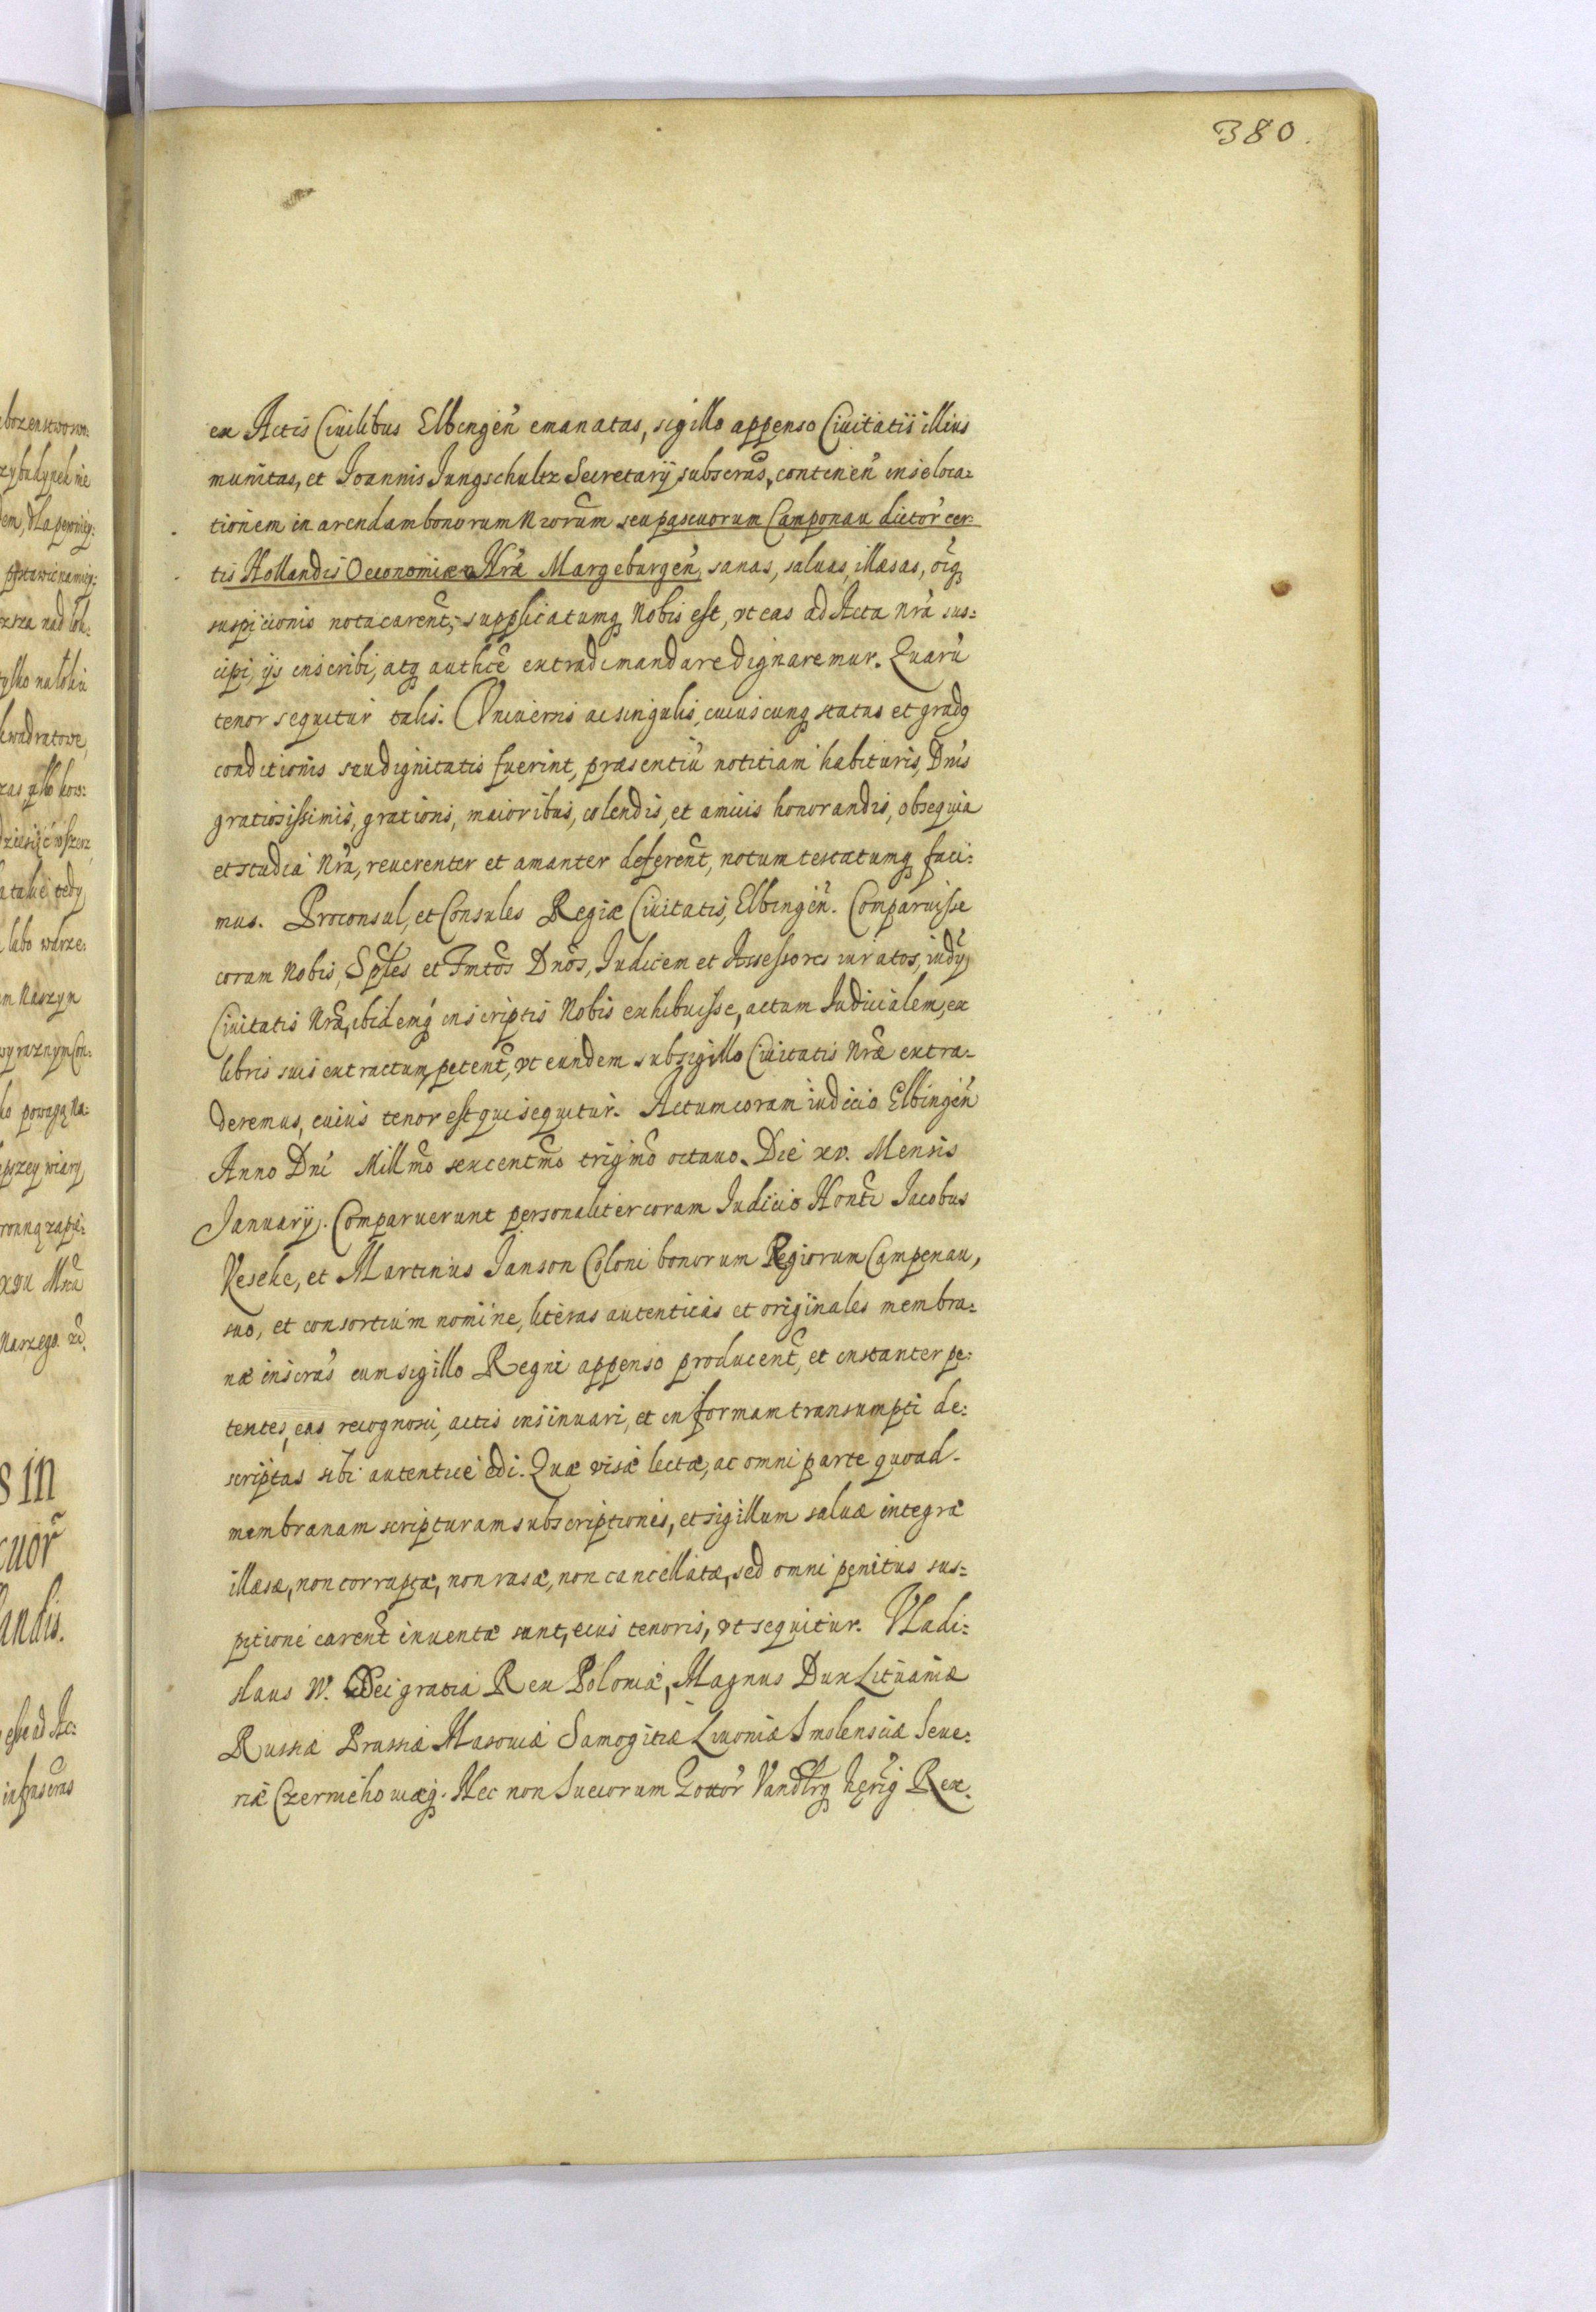 380.
ex Actis Ciuilibus Elbingen̄ emanatas, sigillo appenso Ciuitatis illius
munitas, et Joannis Jungschultz Secretarij subscrās, continen̄ in se loca=
tionem in arendam bonorum Nrorum seu pascuorum Camponau dictor̄ cer=
tis Hollandis Oeconomiæ Nr̄æ Margeburgen̄, sanas, saluas, illæsas, oīq̨
suspicionis nota caren̄t, supplicatumq̨ Nobis est, vt eas ad Acta nrā sus=
cipi, ijs inscribi, atq̨ authēe extradi mandare dignaremur. Quarū
tenor sequitur talis. Vniuersis ac singulis, cuiuscunq̨ status et gradq̨
conditionis seu dignitatis fuerint, præsentiū notitiam habituris, Dnīs
gratiosissimis, gratiosis, maioribus, colendis, et amicis honorandis, obsequia
et studia Nrā, reuerenter et amanter deferen̄t, notum testatumq̨ faci=
mus. Proconsul, et Consules Regiæ Ciuitatis, Elbingen̄. Comparuisse
coram Nobis, Spl̄es et Fmt̄os Dnōs, Judicem et Assessores iuratos, iudij
Ciuitatis Nrǣ, ibidemq̨ in scriptis Nobis exhibuisse, actum Judicialem, ex
libris suis extractum, peten̄t, vt eundem sub sigillo Ciuitatis Nrǣ extra=
deremus, cuius tenor est qui sequitur. Actum coram iudicio Elbingen̄
Anno Dnī Millm̄o sexcentm̄o trigm̄o octauo. Die xv. Mensis
Januarij. Comparuerunt personaliter coram Judicio Hon̄ti Jacobus
Keseke, et Martinus Janson Coloni bonorum Regiorum Campenau,
suo, et consortium nomine, literas autenticas et originales membra=
næ inscrās cum sigillo Regni appenso producen̄t, et instanter pe=
tentes, eas recognosci, actis insinuari, et in formam transumpti de=
scriptas sibi autentice edi. Quæ visæ lectæ, ac omni parte quoad
membranam scripturam subscriptionis, et sigillum saluæ integræ
illæsæ, non corruptæ, non rasæ, non cancellatæ, sed omni penitus sus=
pitione caren̄t inuentæ sunt, eius tenoris, vt sequitur. Vladi=
slaus IV. Dei gratia Rex Poloniæ, Magnus Dux Lituaniæ
Russiæ Prussiæ Masouiæ Samogitiæ Liuoniæ Smolensciæ Seue=
riæ Czernichouiæq̨. Nec non Suecorum Gottor̄ Vandl̄rq̨ hęrīq̨ Rex.